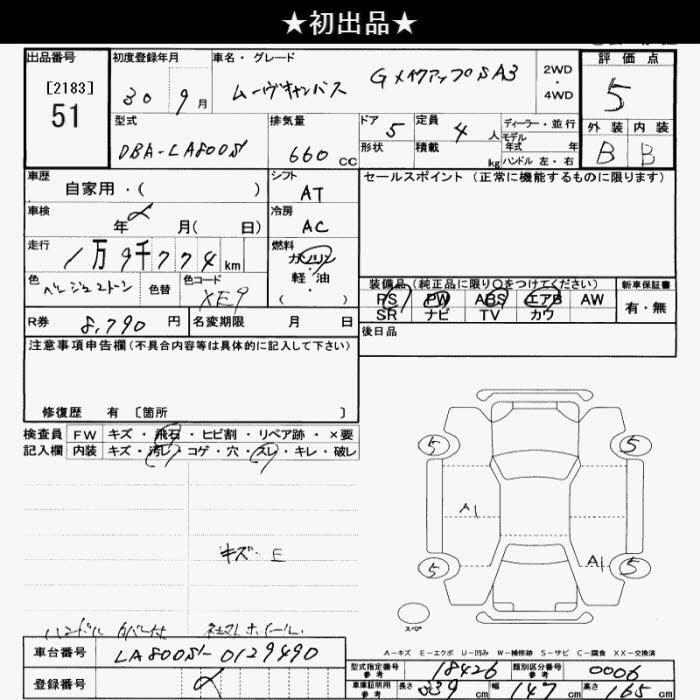 ★初出品★
出品番号 初度登録年月 車名・グレード 評価点
[2183] 30 9月 ムーヴキャンバス GメイクアップSA3 2WD・4WD 5
51
型式 排気量 ドア 5 定員 4人 ディーラー・並行 外装 内装
DBA-LA800S 660CC 形状 積載 kg モデル年式 年 B B
ハンドル 左・右
車歴 自家用・( ) シフト AT セールスポイント(正常に機能するものに限ります)
車検 年 月( 日) 冷房 AC
走行 1万9千774km 燃料 ガソリン
軽・油
( )
色 ベージュ2トーン 色替 色コード XE9 装備品(純正品に限り○をつけてください) 新車保証書
PS PW ABS エアB AW 有・無
SR ナビ TV カワ
R券 8,790円 名変期限 月 日 後日品
注意事項申告欄(不具合内容等は具体的に記入して下さい)
修復歴 有 〔箇所 〕
検査員 FW キズ・飛石・ヒビ割・リペア跡・×要
記入欄 内装 キズ・汚レ・コゲ・穴・スレ・キレ・破レ
5 5
A1
キズ・E A1
5 5
ハンドル カバー付 社外ホイール スペア
A-キズ E-エクボ U-凹み W-補修跡 S-サビ C-腐食 XX-交換済
車台番号 LA800S-0129490
型式指定番号 参考 18426 類別区分番号 参考 0006
登録番号 車庫証明用 参考 長さ 339cm 幅 147cm 高さ 165cm